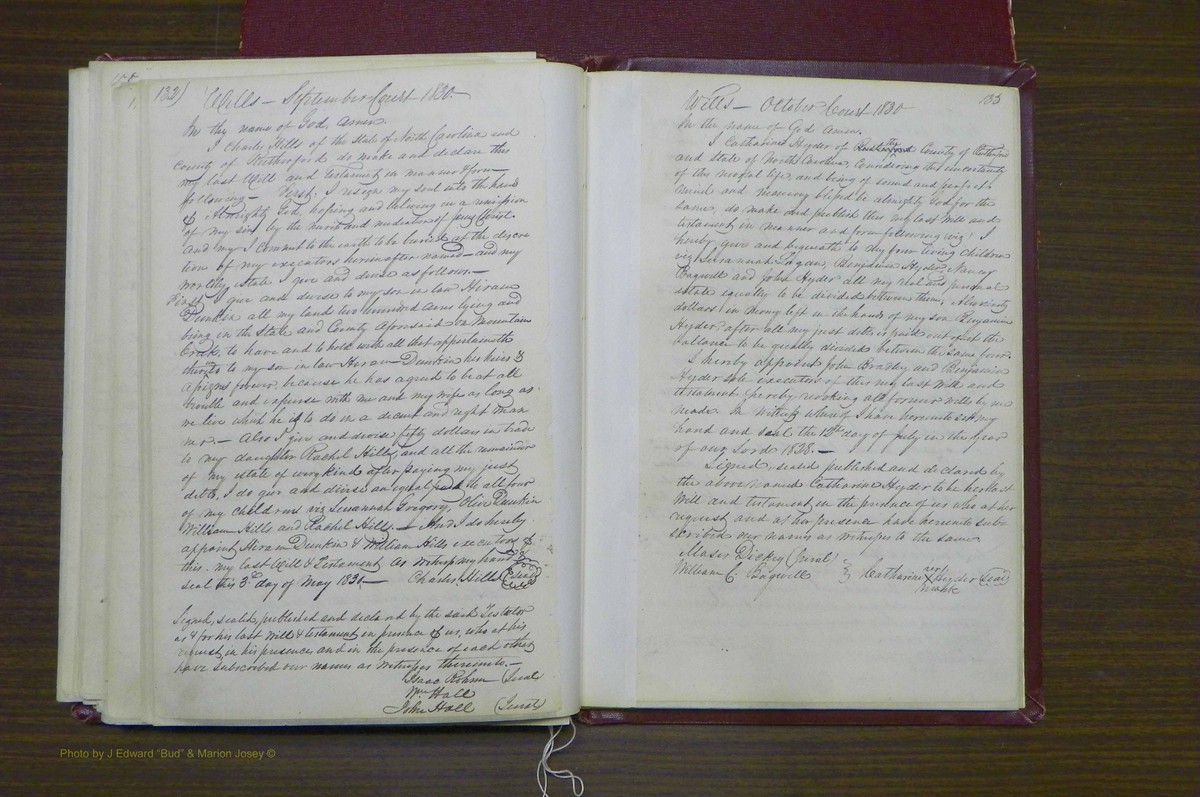 132)
Wills — September Court 1830 —
In the name of God, Amen.
I Charles Hills of the State of North Carolina and
county of Rutherford do make and declare this
my last Will and testament in manner & form
following — First. I resign my soul into the hand
of Almighty God, hoping and believing in a remission
of my sins by the merits and mediation of Jesus Christ.
and my I commit to the earth to be buried at the discre
tion of my executors hereinafter named — and my
worldly estate I give and devise as follows. —
First, I give and devise to my son in law Hiram
Dunkin all my land two hundred acres lying and
being in the State and County aforesaid on Mountain
Creek, to have and to hold with all that appertaineth
thereto to my son in law Hiram Dunkin his heirs &
assigns forever, because he has agreed to be at all
trouble and expense with me and my wife as long as
we live which he is to do in a decent and right man
ner. — Also I give and devise fifty dollars in trade
to my daughter Rachel Hills, and all the remainder
of my estate of every kind after paying my just
debts, I do give and devise an equal part to all four
of my children viz Susannah Gregory, Olive Dunkin
William Hills and Rachel Hills. — And I do hereby
appoint Hiram Dunkin & William Hills executors of
this my last Will & Testament As witness my hand &
seal this 3d day of May 1830 — Charles Hills (Seal)
Signed, sealed, published and declared by the said Testator
as & for his last Will & testament in presence of us, who at his
request, in his presence and in the presence of each other
have subscribed our names as witnesses thereunto. —
Isaac (Jurat
Wm Hall
John Hall (Jurat)
Wills — October Court 1830
133
In the name of God Amen.
I Catharine Hyder of the County of Rutherford
and State of North Carolina, Considering the uncertainty
of this mortal life, and being of sound and perfect
mind and memory blessed be almighty God for the
same, do make and publish this my last Will and
testament in manner and form following viz! I
hereby give and bequeath to my four living Children
viz Susannah Logan, Benjamin Hyder, Nancy
Bagwell and John Hyder all my real and personal
estate equally to be divided between them, Also sixty
dollars in money left in the hands of my son Benjamin
Hyder, after all my just debts is paid out of it the
ballance to be equally divided between the same four.
I hereby appoint John Bradley and Benjamin
Hyder sole executors of this my last Will and
testament, hereby revoking all former wills by me
made. In witness whereof I have hereunto set my
hand and seal the 12th day of July in the Year
of our Lord 1828. —
Signed, sealed published and declared by
the above named Catharine Hyder to be her last
Will and testament in the presence of us who at her
request and at her presence have hereunto subs
scribed our names as witnesses to the same
Moses Dickey (Jurat)
William C. Bagwell
her
Catharine X Hyder (Seal)
mark
Photo by J Edward "Bud" & Marion Josey ©